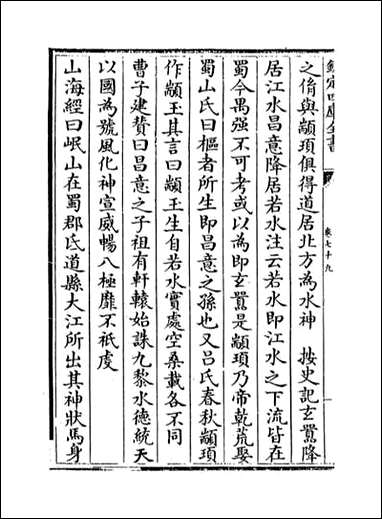 欽定四庫全書
卷七十九
之脩與顓頊俱得道居北方為水神 按史記玄囂降
居江水昌意降居若水注云若水即江水之下流皆在
蜀今禺强不可考或以為即玄囂是顓頊乃帝乾荒娶
蜀山氏曰樞者所生即昌意之孫也又吕氏春秋顓頊
作顓玉其言曰顓玉生自若水實處空桑載各不同
曹子建賛曰昌意之子祖有軒轅始誅九黎水德統天
以國為號風化神宣威暢八極靡不祇虔
山海經曰岷山在蜀郡氐道縣大江所出其神狀馬身